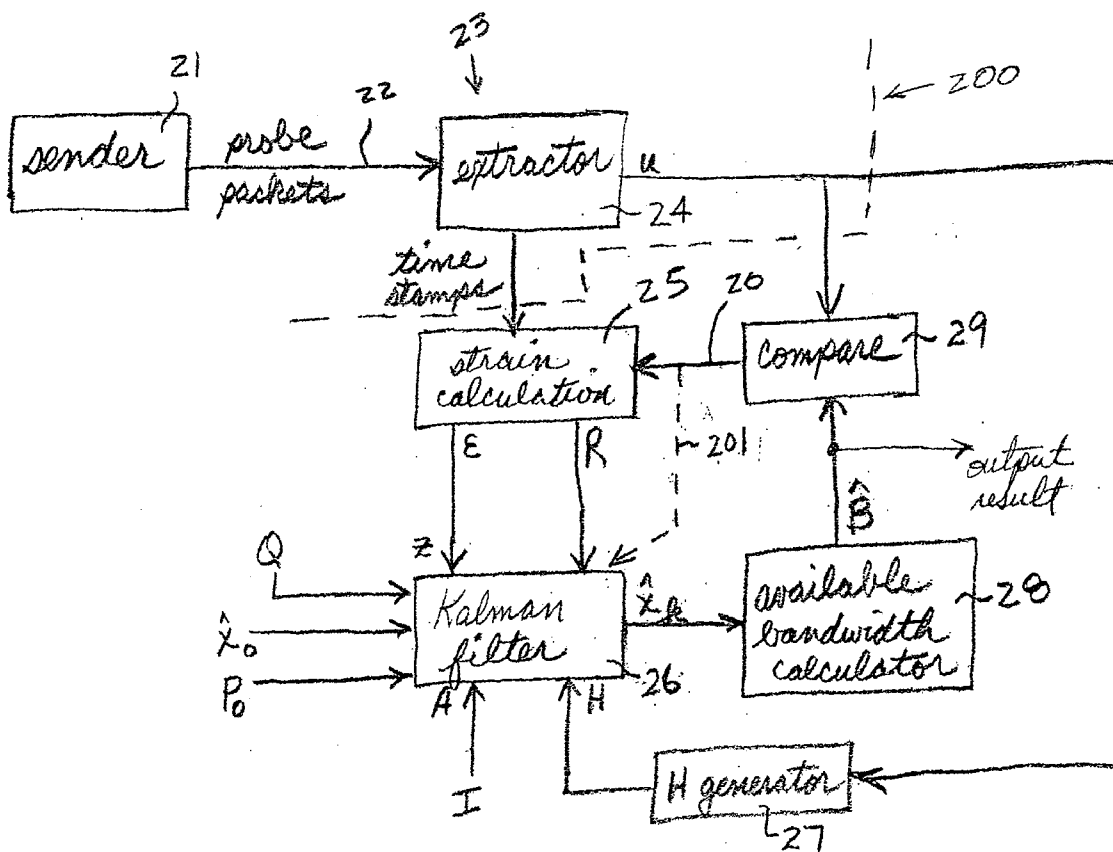 23
21
22
200
sender
probe
packets
extractor
u
24
time
stamps
25
20
strain
calculation
compare
29
201
ε
R
output
result
B̂
Q
z
x̂₀
P₀
Kalman
filter
26
x̂ₖ
available
bandwidth
calculator
28
A
H
I
H generator
27